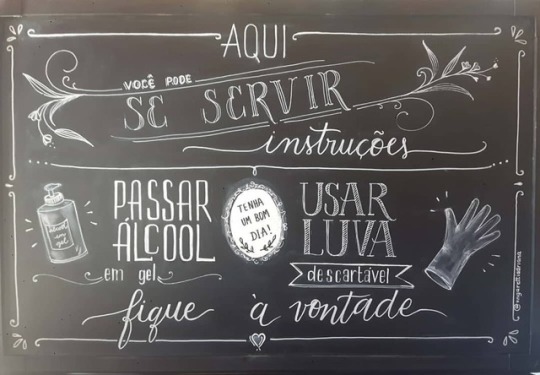 AQUI
VOCÊ PODE
SE SERVIR
instruções
PASSAR
ÁLCOOL
em gel
TENHA
UM BOM
DIA!
USAR
LUVA
descartável
fique à vontade